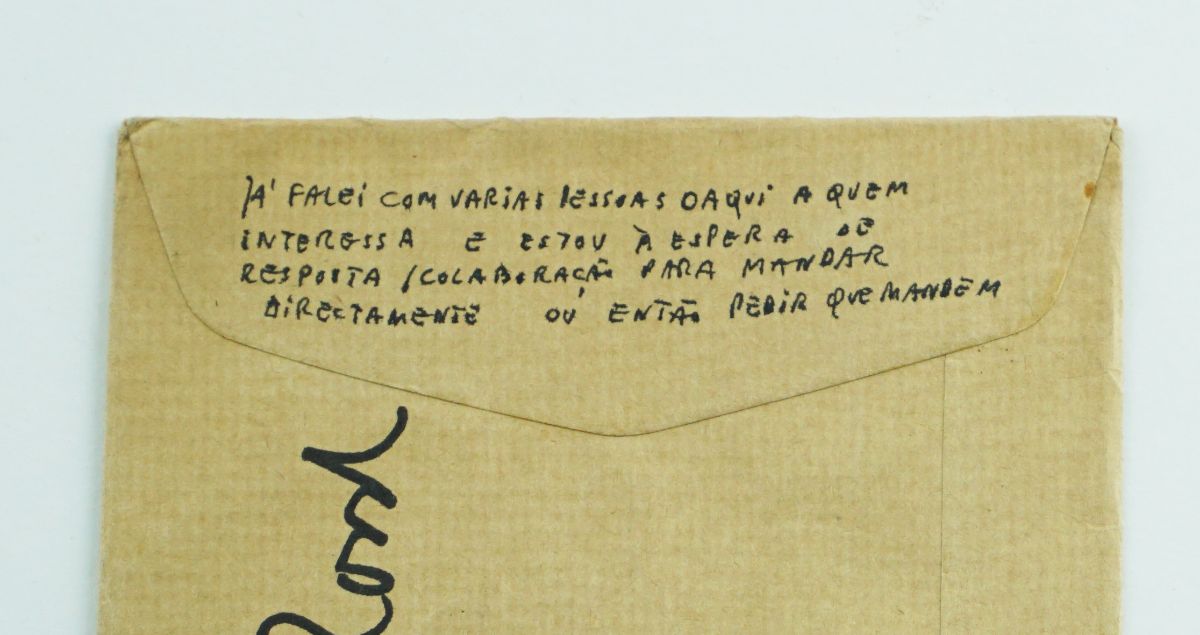 JÁ FALEI COM VARIAS PESSOAS DAQUI A QUEM
INTERESSA E ESTOU À ESPERA DE
RESPOSTA / COLABORAÇÃO PARA MANDAR
DIRECTAMENTE OU ENTÃO PEDIR QUE MANDEM